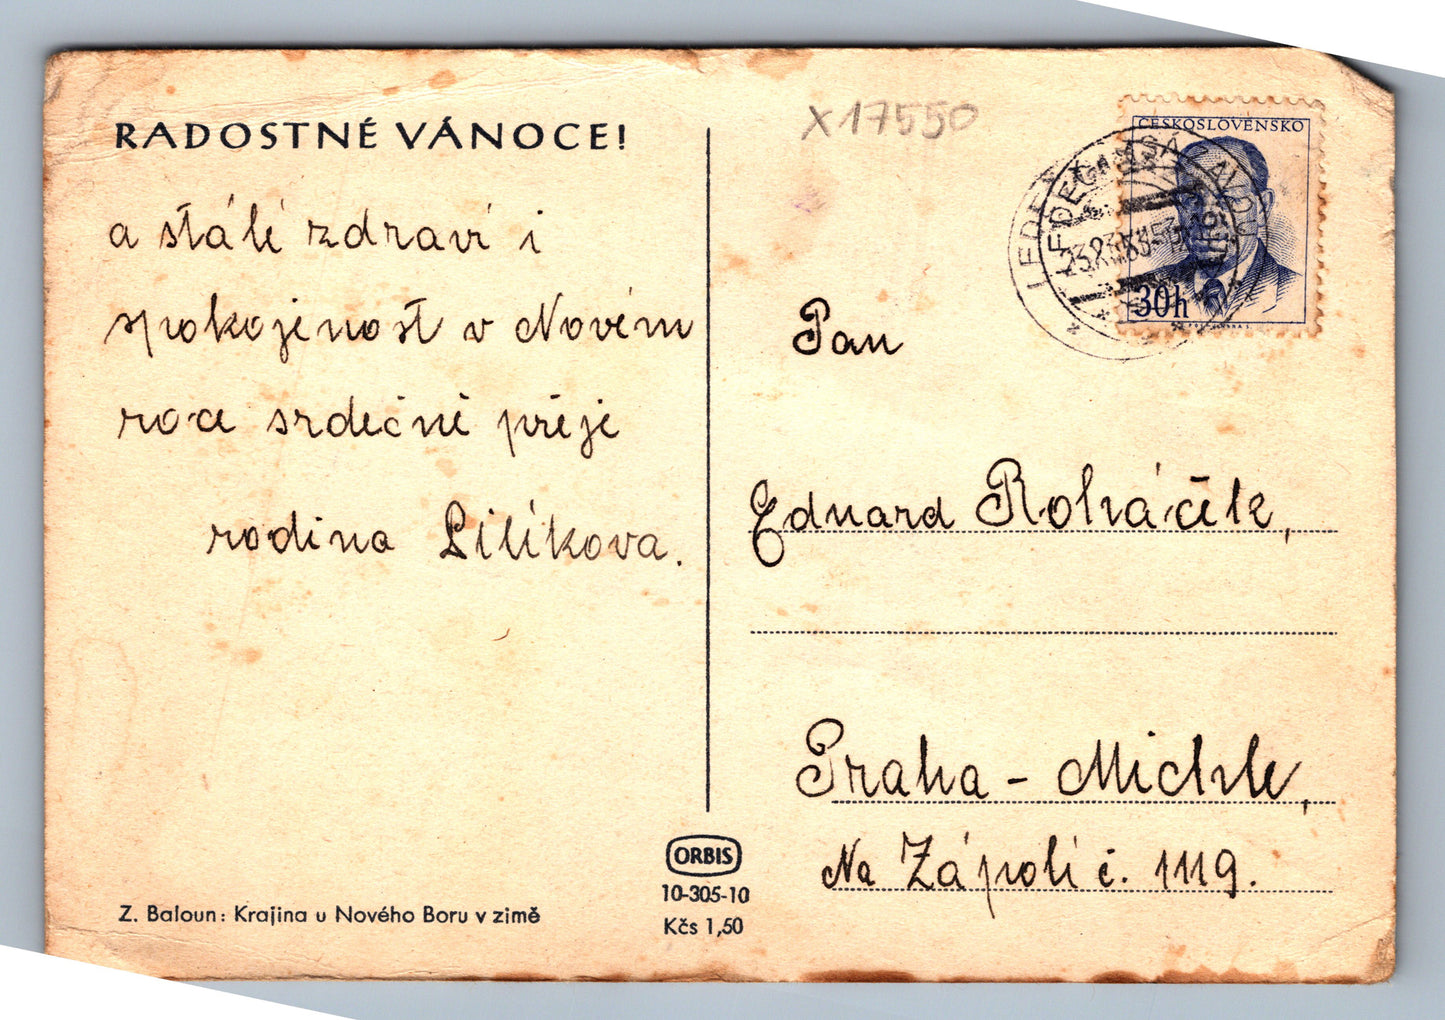 RADOSTNÉ VÁNOCE!
a stálé zdraví i
spokojenost v Novém
roce srdečně přeje
rodina Lilíkova.
Z. Baloun: Krajina u Nového Boru v zimě
ORBIS
10-305-10
Kčs 1,50
X17550
ČESKOSLOVENSKO
30h
Pan
Eduard Roháček,
Praha - Michle,
Na Zápolí č. 1119.